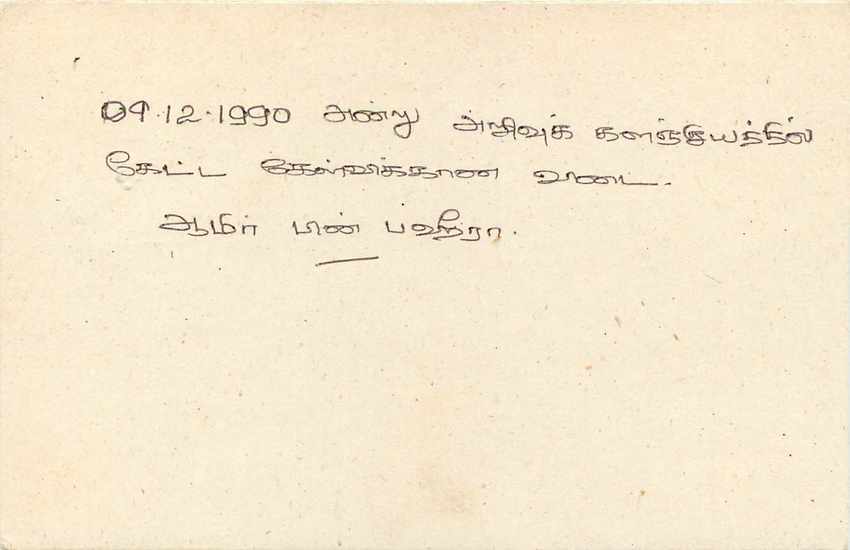 09.12.1990 அன்று அறிவுக் களஞ்சியத்தில்
கேட்ட கேள்விக்கான விடை.
ஆமிர் பின் பஹீரா.